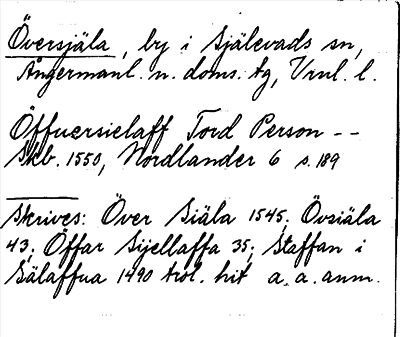 Översjäla, by i Själevads sn,
Ångermanl. n. doms. tg, Vnl. l.
Öffuersielaff Tord Person --
Skb. 1550, Nordlander 6 s. 189
Skrives: Över Siäla 1545; Övsiäla
43; Öffar Sijellaffa 35; Staffan i
Sälaffua 1490 trol. hit a. a. anm.